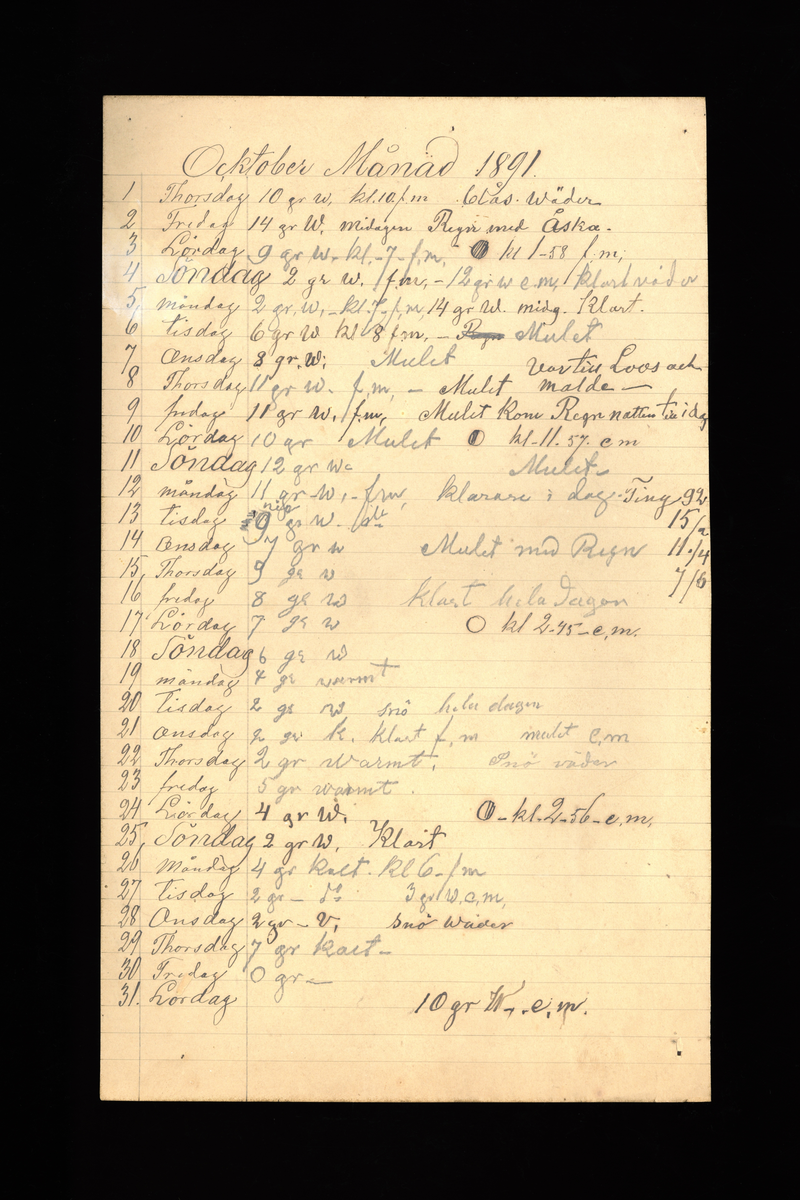 Ocktober Månad 1891.
1 Thorsdag 10 gr w. kl.10 f.m Blås. Wäder
2 Fredag 14 gr W. midagen Regn med Åska.
3 Lördag 9 gr w. kl.-7-f.m, kl 1-58 f.m;
4 Söndag 2 gr w. f.m. - 12 gr w e.m. klart väder
5, måndag 2 gr. w, - kl 7-f.m, 14 gr W. midg. Klart.
6 tisdag 6 gr W kl 8 f.m. - Mulet
7 Onsdag 8 gr. W; Mulet Var til Loos och
8 Thorsdag 11 gr w. f.m, - Mulet malde -
9 fredag 11 gr w. f.m; Mulet Kom Regn natten til idag
10 Lördag 10 gr Mulet kl-11.57. e m
11 Söndag 12 gr w- Mulet-
12 måndag 11 gr w, - f.m, klarare i dag Ting 92
13 tisdag 9 gr w. 15/2
14 Onsdag 7 gr w Mulet med Regn 11./4
15, Thorsdag 9 gr w 7/6
16 fredag 8 gr w klart hela dagen
17 Lördag 7 gr w kl 2-45-e.m.
18 Söndag 6 gr w
19 måndag 4 gr warmt
20 tisdag 2 gr w snö hela dagen
21 Onsdag 2 gr k. klart f, m mulet e,m
22 Thorsdag 2 gr warmt. Snö väder
23 fredag 5 gr warmt.
24 Lördag 4 gr W. - kl. 2-56-e.m.
25, Söndag 2 gr W, Klart
26 Måndag 4 gr kalt. kl 6-f m
27 tisdag 2 gr - do 3 gr W. e.m,
28 Onsdag 2 gr - v; snö wäder
29 Thorsdag 7 gr kalt -
30 Fredag 0 gr -
31. Lördag 10 gr W-. e.m.